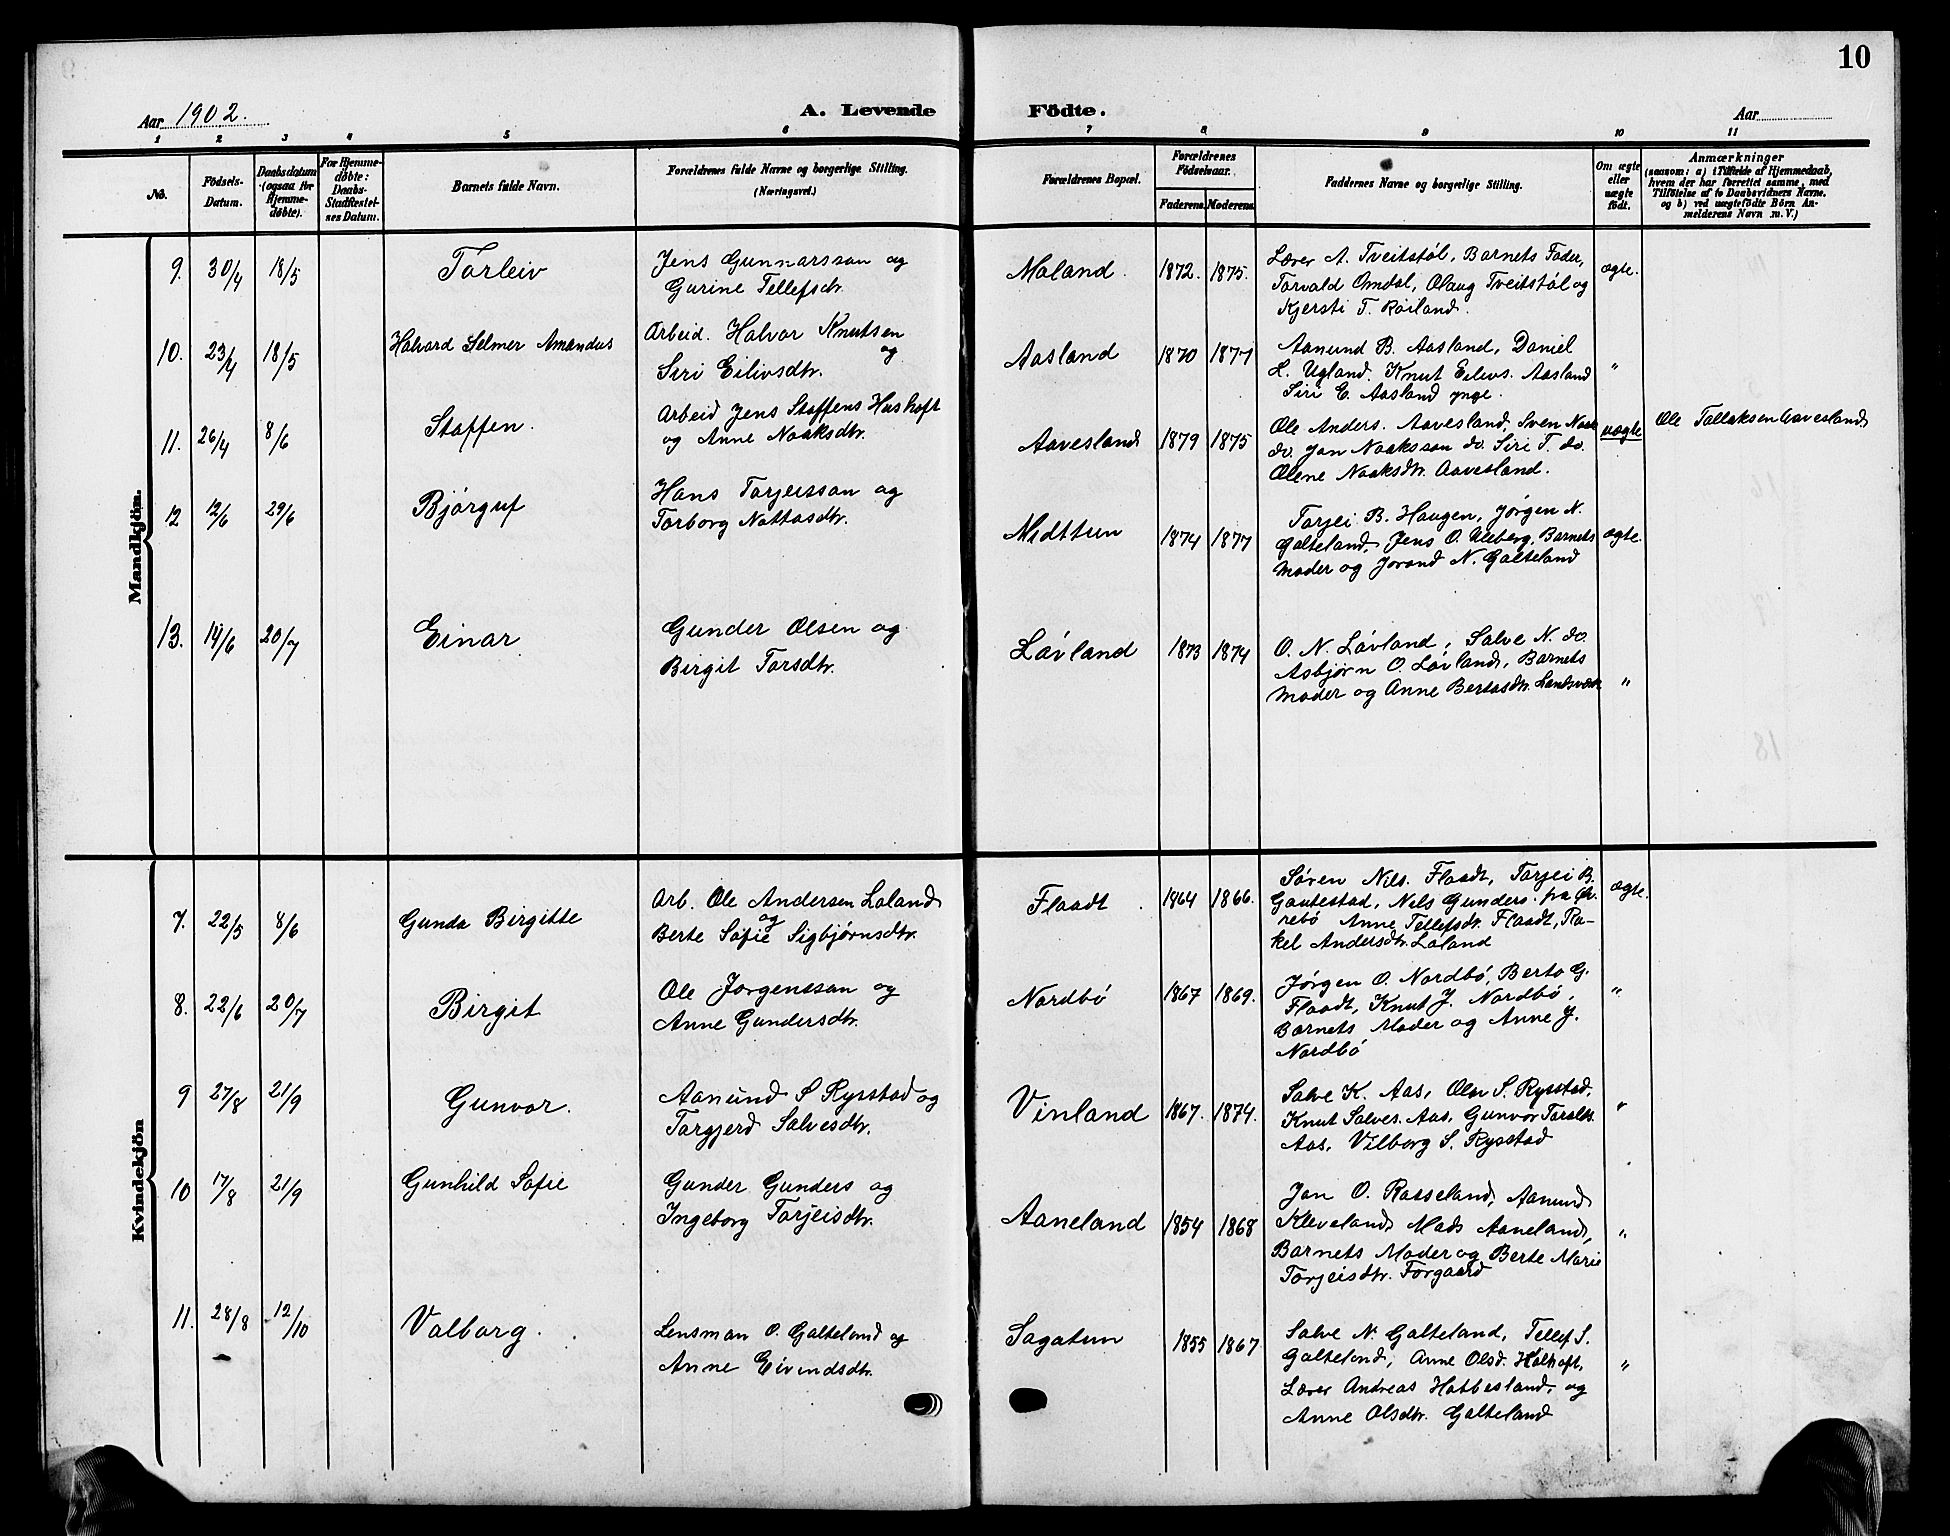 10
Aar 1902.
A. Levende Födte.
Aar
1 2 3 4 5 6 7 8 9 10 11
No.
Födsels-
Datum.
Daabsdatum
(ogsaa for
Hjemme-
døbte).
For Hjemme-
døbte:
Daabs-
Stadfæstel-
ses Datum.
Barnets fulde Navn.
Forældrenes fulde Navne og borgerlige Stilling.
(Næringsvei.)
Forældrenes Bopæl.
Forældrenes
Födselsaar.
Faderens. Moderens.
Faddernes Navne og borgerlige Stilling.
Om ægte
eller
uægte
födt.
Anmærkninger
(saasom: a) i Tilfælde af Hjemmedaab,
hvem der har forrettet samme, med
Tilföielse af to Daabsvidners Navne.
og b) ved uægtefödte Börn An-
melderens Navn m. V.)
Mandkjön.
9. 30/4 18/5 Torleiv
Jens Gunnarsson og
Gurine Tellefsdtr.
Moland. 1872. 1875.
Lærer A. Tveitstøl, Barnets Fader,
Torvald Omdal, Olaug Tveitstøl og
Kjersti T. Røiland.
ægte.
10. 23/4 18/5 Halvard Selmer Amandus
Arbeid. Halvor Knutsen
og
Siri Eilivsdtr.
Aasland 1870 1877
Aanund B. Aasland, Daniel
L. Ugland. Knut Eilevs. Aasland
Siri E. Aasland ynge.
"
11. 26/4 8/6 Staffen.
Arbeid Jens Staffens Hushoft
og Anne Noaksdtr.
Aavesland 1879 1875
Ole Anders. Aavesland, Sven Noaks
do. Jon Noaksson do. Siri T. do.
Olene Noaksdtr. Aavesland.
uægte
Ole Tallaksen Aavesland
12 12/6 29/6 Bjørguf
Hans Torjeisson og
Torborg Nottosdtr.
Midttun 1874 1877
Torjei B. Haugen, Jørgen N.
Galteland, Jens O. Uleberg, Barnets
Moder og Jorand N. Galteland
ægte.
13. 14/6 20/7 Einar
Gunder Olsen og
Birgit Torsdtr.
Løvland 1873 1874
O. N. Løvland, Salve N. do.
Asbjørn O. Løvland, Barnets
Moder og Anne Bertosdtr.
"
Kvindekjön
7. 22/5 8/6 Gunda Birgitte
Arb. Ole Andersen Loland
og
Berte Sofie Sigbjørnsdtr.
Flaadt. 1864 1866.
Søren Nils. Flaadt, Torjei B.
Gautestad, Nils Gunders. fra Øv-
rebø Anne Tellefsdtr. Flaadt, Ra-
kel Andersdtr. Loland
ægte.
8. 22/6 20/7 Birgit
Ole Jørgensson og
Anne Gundersdtr.
Nordbø 1867 1869.
Jørgen O. Nordbø, Berto G.
Flaadt, Knut J. Nordbø,
Barnets Moder og Anne J.
Nordbø
"
9 27/8 21/9 Gunvor.
Aanund S Rysstad og
Torgjerd Salvesdtr.
Vinland 1867. 1874.
Salve K. Aas, Olav S. Rysstad,
Knut Salves. Aas, Gunvor Toralds.
Aas, Vilborg S. Rysstad
"
10 17/8 21/9 Gunhild Sofie
Gunder Gunders og
Ingeborg Torjeisdtr.
Aaneland 1854 1868
Jon O. Rosseland, Aanund
Kleveland, Mads Aaneland,
Barnets Moder og Berte Marie
Torjeisdtr. Forgaard
"
11. 28/8 12/10 Valborg.
Lensman O. Galteland og
Anne Eivindsdtr.
Sagatun 1855 1867
Salve N. Galteland, Tellef S.
Galteland, Anne Olsd. Holhoft,
Lærer Andreas Hatbesland, og
Anne Olsdtr. Galteland
"